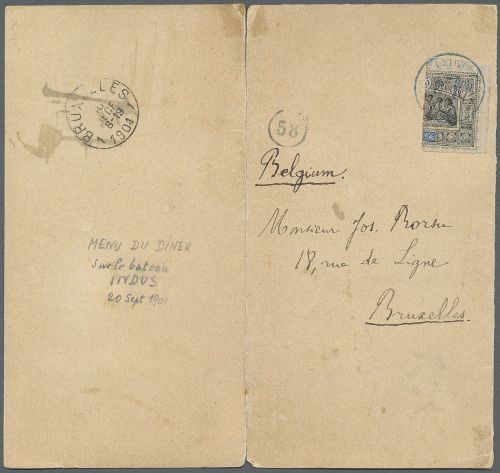 BRUXELLES
1901
MENU DU DÎNER
sur le bateau
INDUS
20 Sept 1901
58
Belgium.
Monsieur Jos.
18, rue de Ligne
Bruxelles.